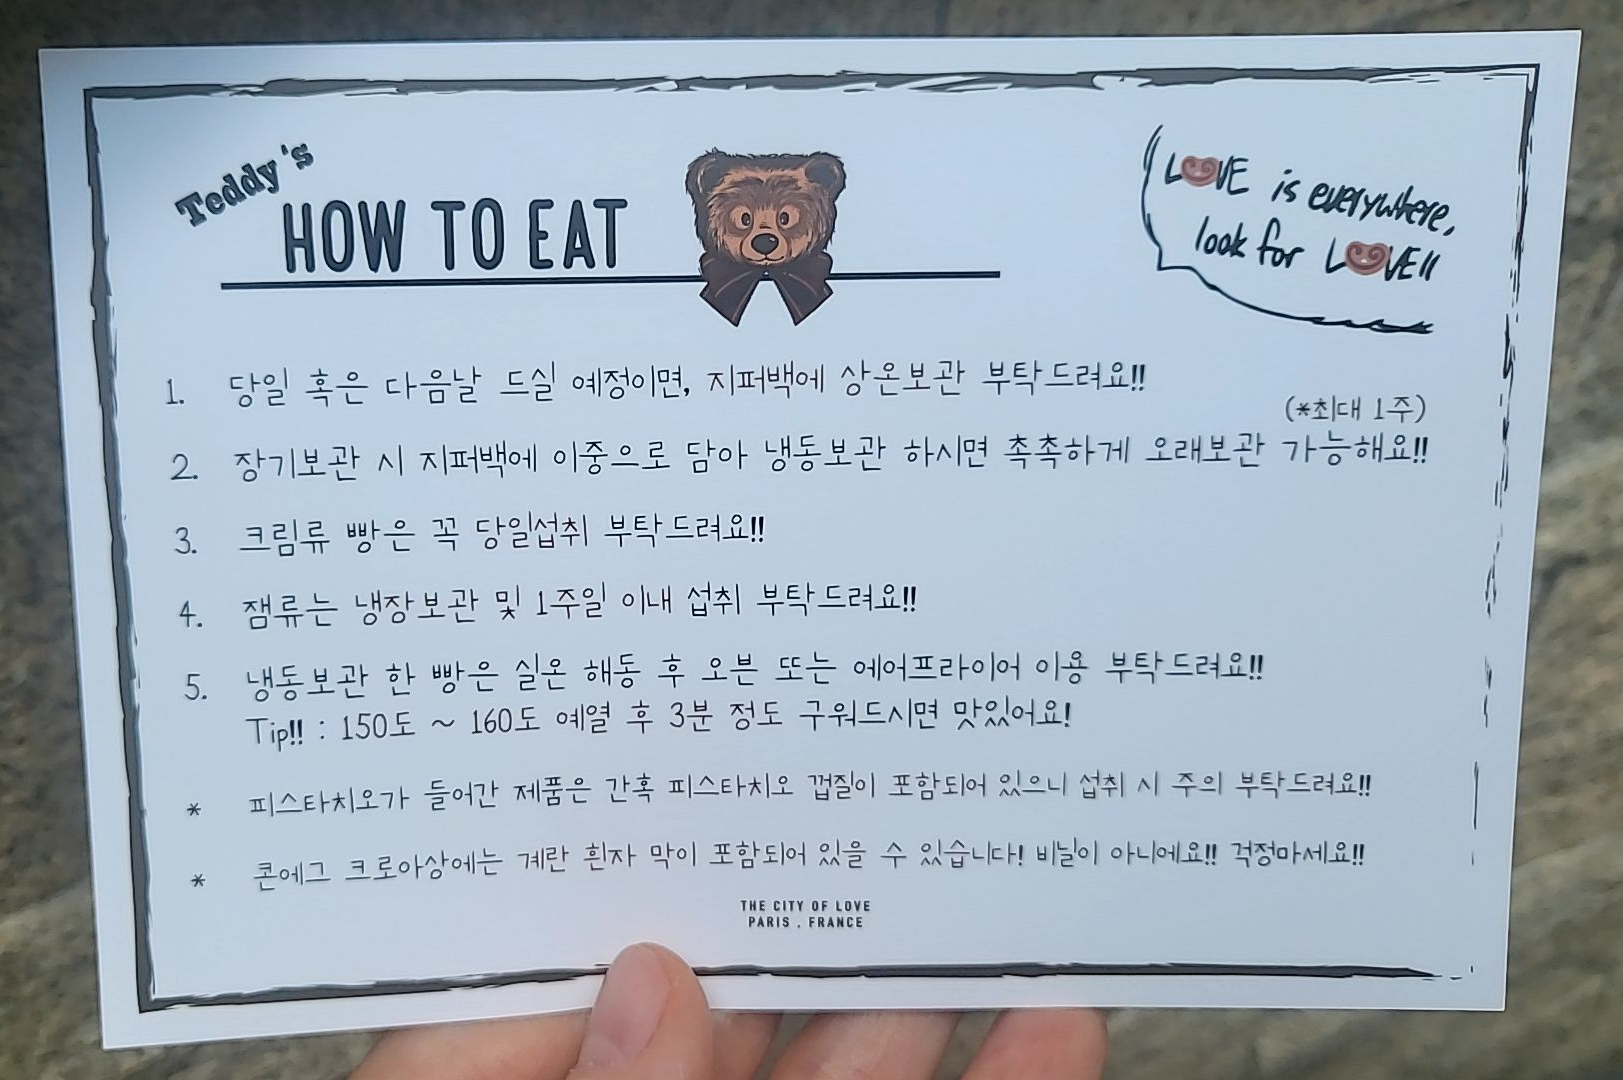 Teddy's
HOW TO EAT
LOVE is everywhere,
look for LOVE!!
1. 당일 혹은 다음날 드실 예정이면, 지퍼백에 상온보관 부탁드려요!!
(*최대 1주)
2. 장기보관 시 지퍼백에 이중으로 담아 냉동보관 하시면 촉촉하게 오래보관 가능해요!!
3. 크림류 빵은 꼭 당일섭취 부탁드려요!!
4. 잼류는 냉장보관 및 1주일 이내 섭취 부탁드려요!!
5. 냉동보관 한 빵은 실온 해동 후 오븐 또는 에어프라이어 이용 부탁드려요!!
Tip!! : 150도 ~ 160도 예열 후 3분 정도 구워드시면 맛있어요!
* 피스타치오가 들어간 제품은 간혹 피스타치오 껍질이 포함되어 있으니 섭취 시 주의 부탁드려요!!
* 콘에그 크로아상에는 계란 흰자 막이 포함되어 있을 수 있습니다! 비닐이 아니에요!! 걱정마세요!!
THE CITY OF LOVE
PARIS . FRANCE